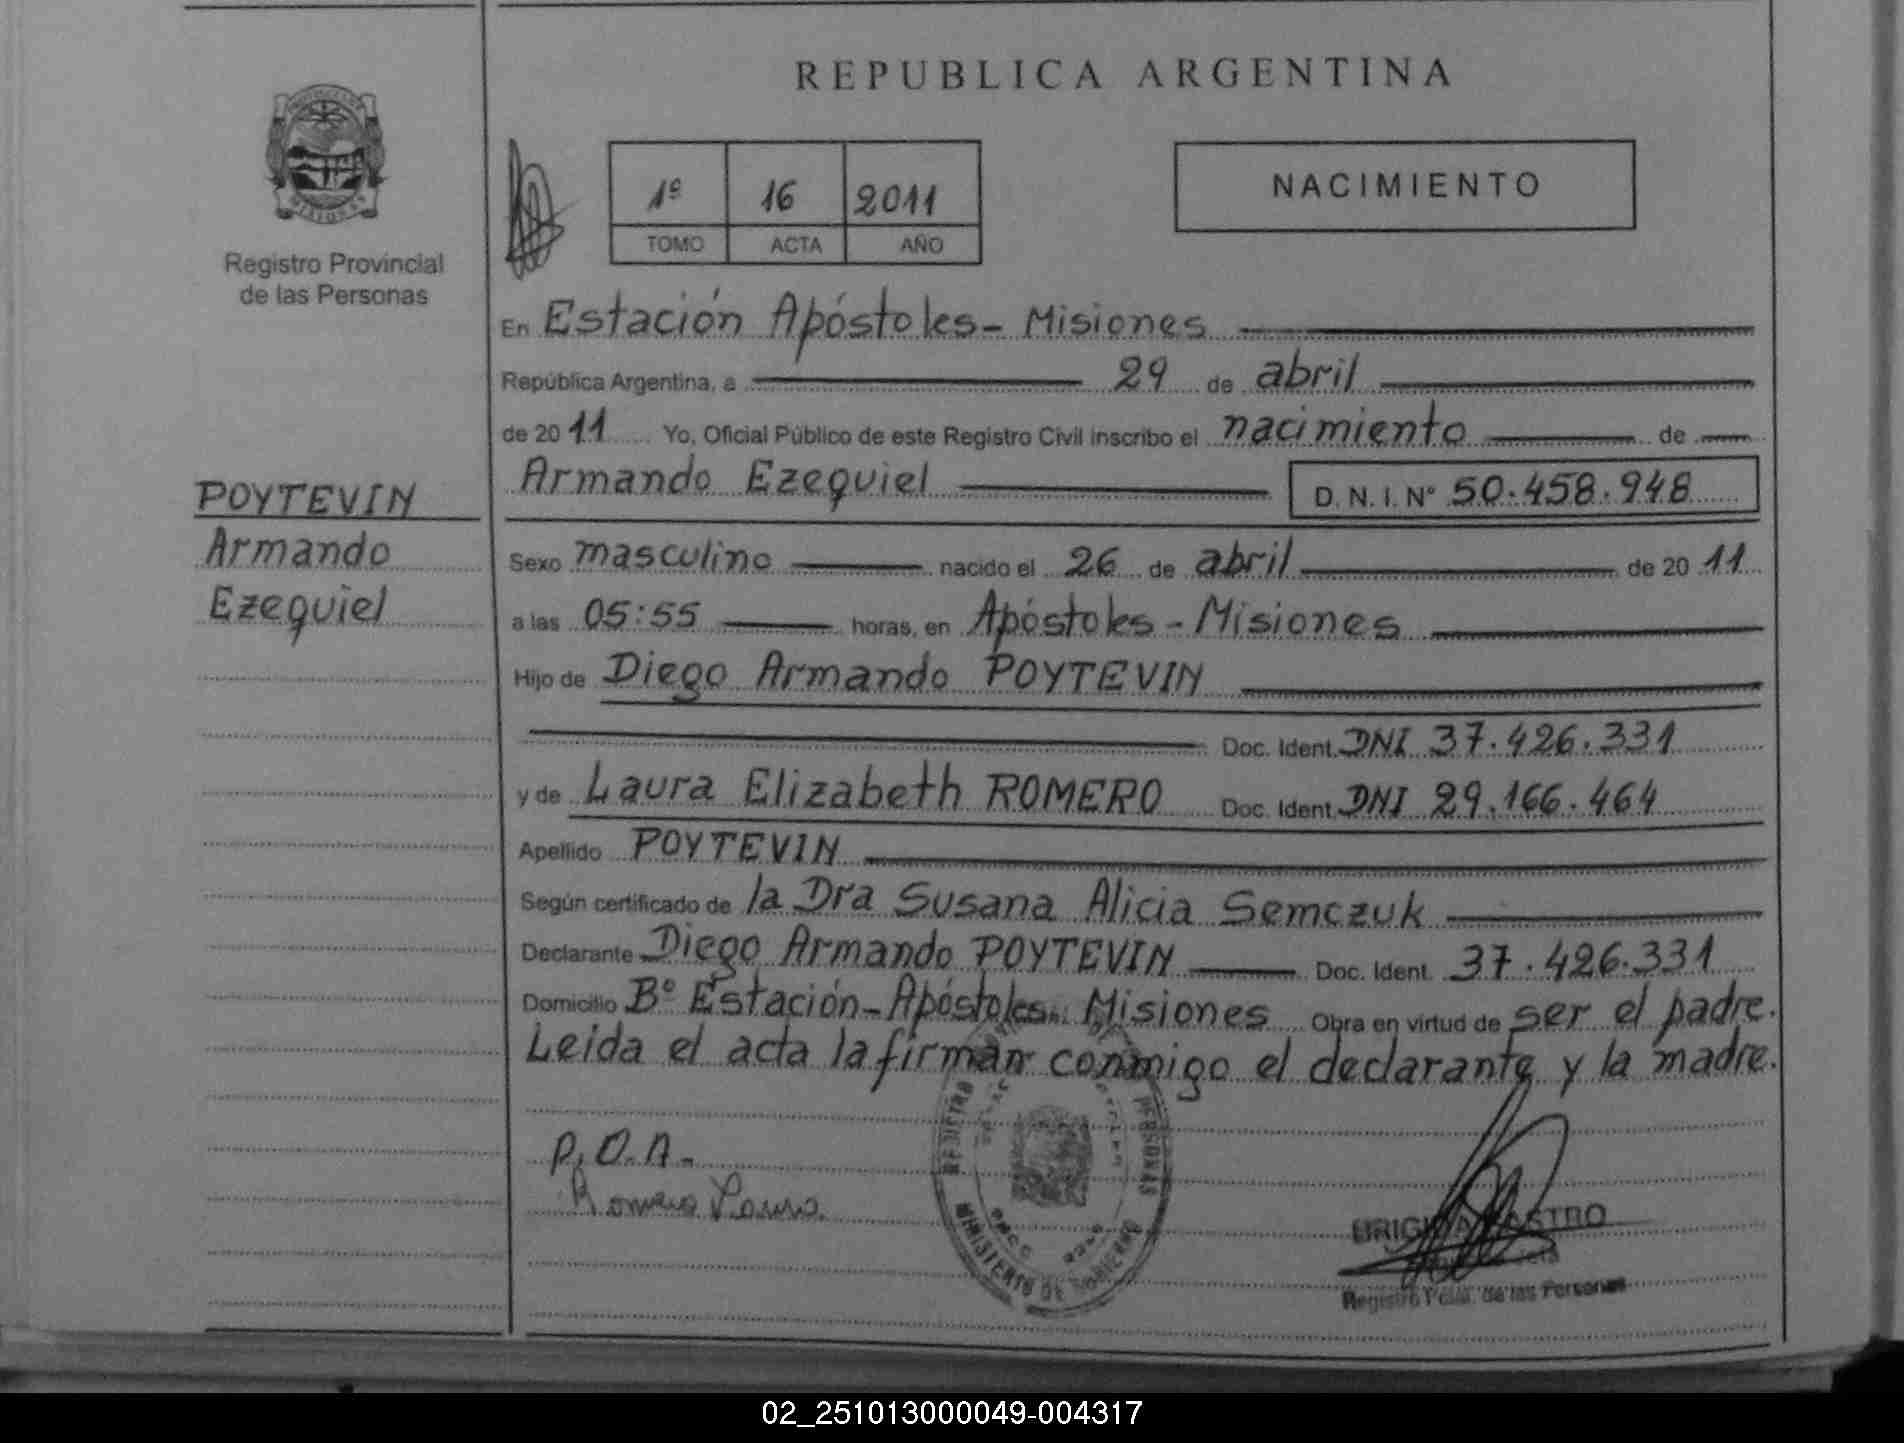 REPUBLICA ARGENTINA
MISIONES
Registro Provincial
de las Personas
1º 16 2011
TOMO ACTA AÑO
NACIMIENTO
En Estación Apóstoles - Misiones
República Argentina, a 29 de abril
de 2011 Yo, Oficial Público de este Registro Civil inscribo el nacimiento de
Armando Ezequiel D.N.I. Nº 50.458.948
POYTEVIN
Armando
Ezequiel
Sexo masculino nacido el 26 de abril de 2011
a las 05:55 horas, en Apóstoles - Misiones
Hijo de Diego Armando POYTEVIN
Doc. Ident. DNI 37.426.331
y de Laura Elizabeth ROMERO Doc. Ident. DNI 29.166.464
Apellido POYTEVIN
Según certificado de la Dra Susana Alicia Semczuk
Declarante Diego Armando POYTEVIN Doc. Ident. 37.426.331
Domicilio Bº Estación - Apóstoles. Misiones Obra en virtud de ser el padre.
Leida el acta la firman conmigo el declarante y la madre.
P.D.A.
Romero Laura
REGISTRO PERSONAS
MINISTERIO DE GOBIERNO
CASTRO
Registro Pcial. de las Personas
02_251013000049-004317